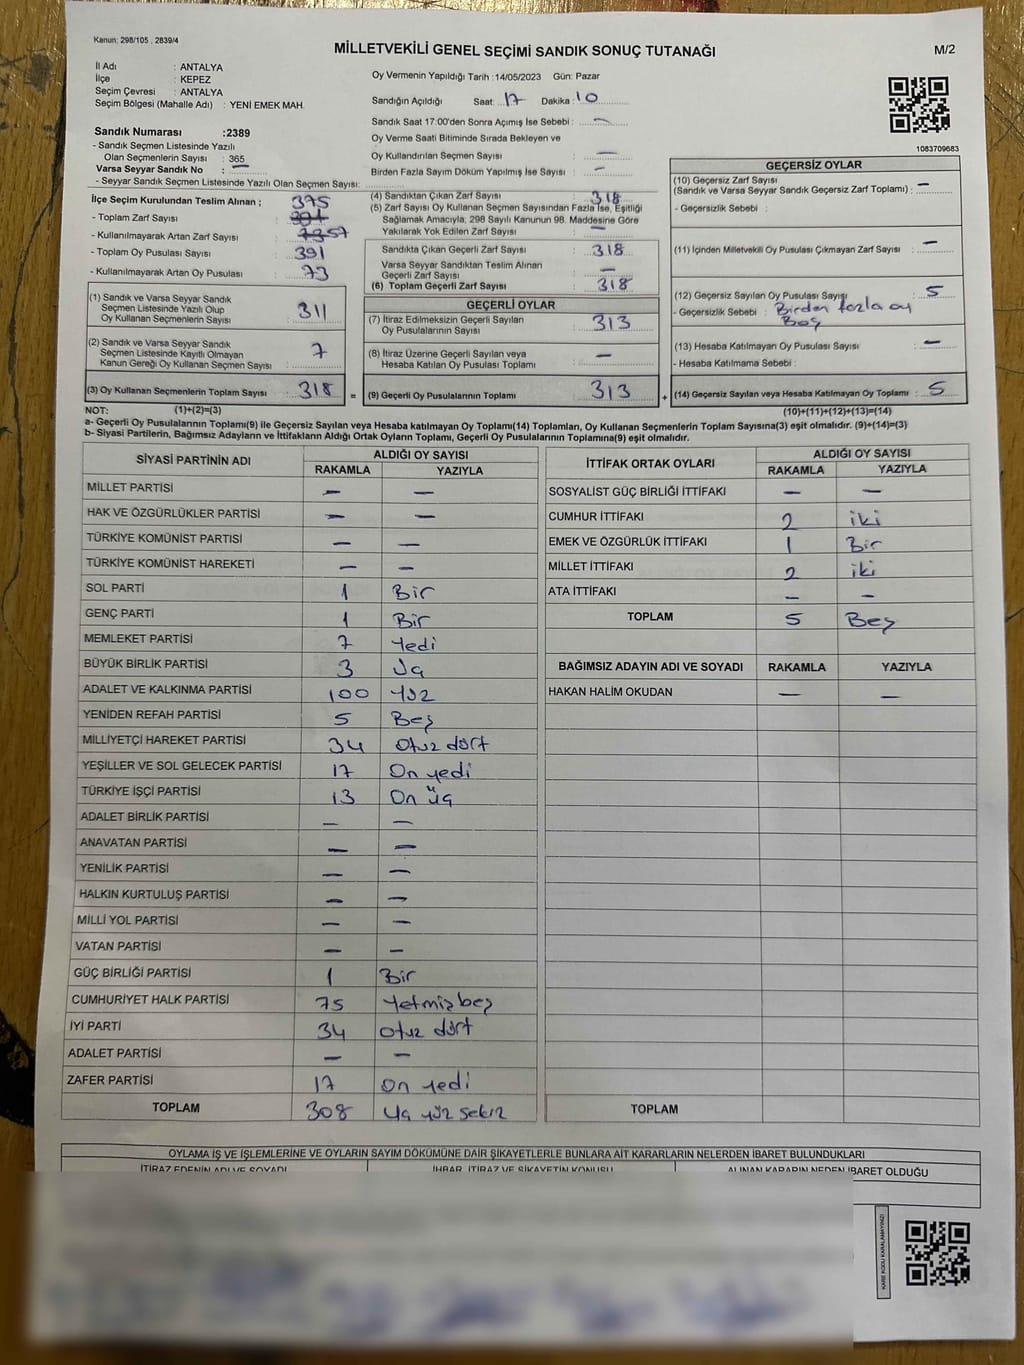 Kanun: 298/105 , 2839/4
MİLLETVEKİLİ GENEL SEÇİMİ SANDIK SONUÇ TUTANAĞI
M/2
İl Adı : ANTALYA
İlçe : KEPEZ
Seçim Çevresi : ANTALYA
Seçim Bölgesi (Mahalle Adı) : YENİ EMEK MAH.
Sandık Numarası :2389
- Sandık Seçmen Listesinde Yazılı
Olan Seçmenlerin Sayısı : 365
Varsa Seyyar Sandık No : —
- Seyyar Sandık Seçmen Listesinde Yazılı Olan Seçmen Sayısı:
Oy Vermenin Yapıldığı Tarih :14/05/2023 Gün: Pazar
Sandığın Açıldığı Saat: 17 Dakika: 10
Sandık Saat 17:00'den Sonra Açımış İse Sebebi : —
Oy Verme Saati Bitiminde Sırada Bekleyen ve
Oy Kullandırılan Seçmen Sayısı : —
Birden Fazla Sayım Döküm Yapılmış İse Sayısı : —
1083709683
İlçe Seçim Kurulundan Teslim Alınan ; 375
- Toplam Zarf Sayısı :
- Kullanılmayarak Artan Zarf Sayısı : 57
- Toplam Oy Pusulası Sayısı : 391
- Kullanılmayarak Artan Oy Pusulası : 73
(1) Sandık ve Varsa Seyyar Sandık
Seçmen Listesinde Yazılı Olup
Oy Kullanan Seçmenlerin Sayısı : 311
(2) Sandık ve Varsa Seyyar Sandık
Seçmen Listesinde Kayıtlı Olmayan
Kanun Gereği Oy Kullanan Seçmen Sayısı : 7
(3) Oy Kullanan Seçmenlerin Toplam Sayısı : 318
(4) Sandıktan Çıkan Zarf Sayısı : 318
(5) Zarf Sayısı Oy Kullanan Seçmen Sayısından Fazla İse, Eşitliği
Sağlamak Amacıyla, 298 Sayılı Kanunun 98. Maddesine Göre
Yakılarak Yok Edilen Zarf Sayısı : —
Sandıkta Çıkan Geçerli Zarf Sayısı : 318
Varsa Seyyar Sandıktan Teslim Alınan
Geçerli Zarf Sayısı : —
(6) Toplam Geçerli Zarf Sayısı : 318
GEÇERLİ OYLAR
(7) İtiraz Edilmeksizin Geçerli Sayılan
Oy Pusulalarının Sayısı : 313
(8) İtiraz Üzerine Geçerli Sayılan veya
Hesaba Katılan Oy Pusulası Toplamı : —
= (9) Geçerli Oy Pusulalarının Toplamı : 313
GEÇERSİZ OYLAR
(10) Geçersiz Zarf Sayısı
(Sandık ve Varsa Seyyar Sandık Geçersiz Zarf Toplamı) : —
- Geçersizlik Sebebi :
(11) İçinden Milletvekili Oy Pusulası Çıkmayan Zarf Sayısı : —
(12) Geçersiz Sayılan Oy Pusulası Sayısı : 5
- Geçersizlik Sebebi : Birden fazla oy
Boş
(13) Hesaba Katılmayan Oy Pusulası Sayısı : —
- Hesaba Katılmama Sebebi :
+ (14) Geçersiz Sayılan veya Hesaba Katılmayan Oy Toplamı : 5
NOT: (1)+(2)=(3)
(10)+(11)+(12)+(13)=(14)
a- Geçerli Oy Pusulalarının Toplamı(9) ile Geçersiz Sayılan veya Hesaba katılmayan Oy Toplamı(14) Toplamları, Oy Kullanan Seçmenlerin Toplam Sayısına(3) eşit olmalıdır. (9)+(14)=(3)
b- Siyasi Partilerin, Bağımsız Adayların ve İttifakların Aldığı Ortak Oyların Toplamı, Geçerli Oy Pusulalarının Toplamına(9) eşit olmalıdır.
SİYASİ PARTİNİN ADI ALDIĞI OY SAYISI
RAKAMLA YAZIYLA
MİLLET PARTİSİ — —
HAK VE ÖZGÜRLÜKLER PARTİSİ — —
TÜRKİYE KOMÜNİST PARTİSİ — —
TÜRKİYE KOMÜNİST HAREKETİ — —
SOL PARTİ 1 Bir
GENÇ PARTİ 1 Bir
MEMLEKET PARTİSİ 7 Yedi
BÜYÜK BİRLİK PARTİSİ 3 Üç
ADALET VE KALKINMA PARTİSİ 100 Yüz
YENİDEN REFAH PARTİSİ 5 Beş
MİLLİYETÇİ HAREKET PARTİSİ 34 Otuz dört
YEŞİLLER VE SOL GELECEK PARTİSİ 17 On yedi
TÜRKİYE İŞÇİ PARTİSİ 13 On üç
ADALET BİRLİK PARTİSİ — —
ANAVATAN PARTİSİ — —
YENİLİK PARTİSİ — —
HALKIN KURTULUŞ PARTİSİ — —
MİLLİ YOL PARTİSİ — —
VATAN PARTİSİ — —
GÜÇ BİRLİĞİ PARTİSİ 1 Bir
CUMHURİYET HALK PARTİSİ 75 Yetmiş beş
İYİ PARTİ 34 Otuz dört
ADALET PARTİSİ — —
ZAFER PARTİSİ 17 On yedi
TOPLAM 308 Üç yüz sekiz
İTTİFAK ORTAK OYLARI ALDIĞI OY SAYISI
RAKAMLA YAZIYLA
SOSYALİST GÜÇ BİRLİĞİ İTTİFAKI — —
CUMHUR İTTİFAKI 2 iki
EMEK VE ÖZGÜRLÜK İTTİFAKI 1 Bir
MİLLET İTTİFAKI 2 iki
ATA İTTİFAKI — —
TOPLAM 5 Beş
BAĞIMSIZ ADAYIN ADI VE SOYADI RAKAMLA YAZIYLA
HAKAN HALİM OKUDAN — —
TOPLAM
OYLAMA İŞ VE İŞLEMLERİNE VE OYLARIN SAYIM DÖKÜMÜNE DAİR ŞİKAYETLERLE BUNLARA AİT KARARLARIN NELERDEN İBARET BULUNDUKLARI
İTİRAZ EDENİN ADI VE SOYADI İHBAR, İTİRAZ VE ŞİKAYETİN KONUSU ALINAN KARARIN NEDEN İBARET OLDUĞU
KARE KODU KARALAMAYINIZ!